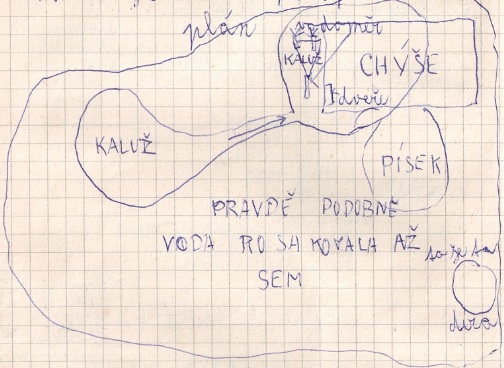 plán vodoměr
KALUŽ
CHÝŠE
dveře
KALUŽ
PÍSEK
PRAVDĚ PODOBNĚ
VODA ROSAKOVALA AŽ
SEM
to je ta
díra